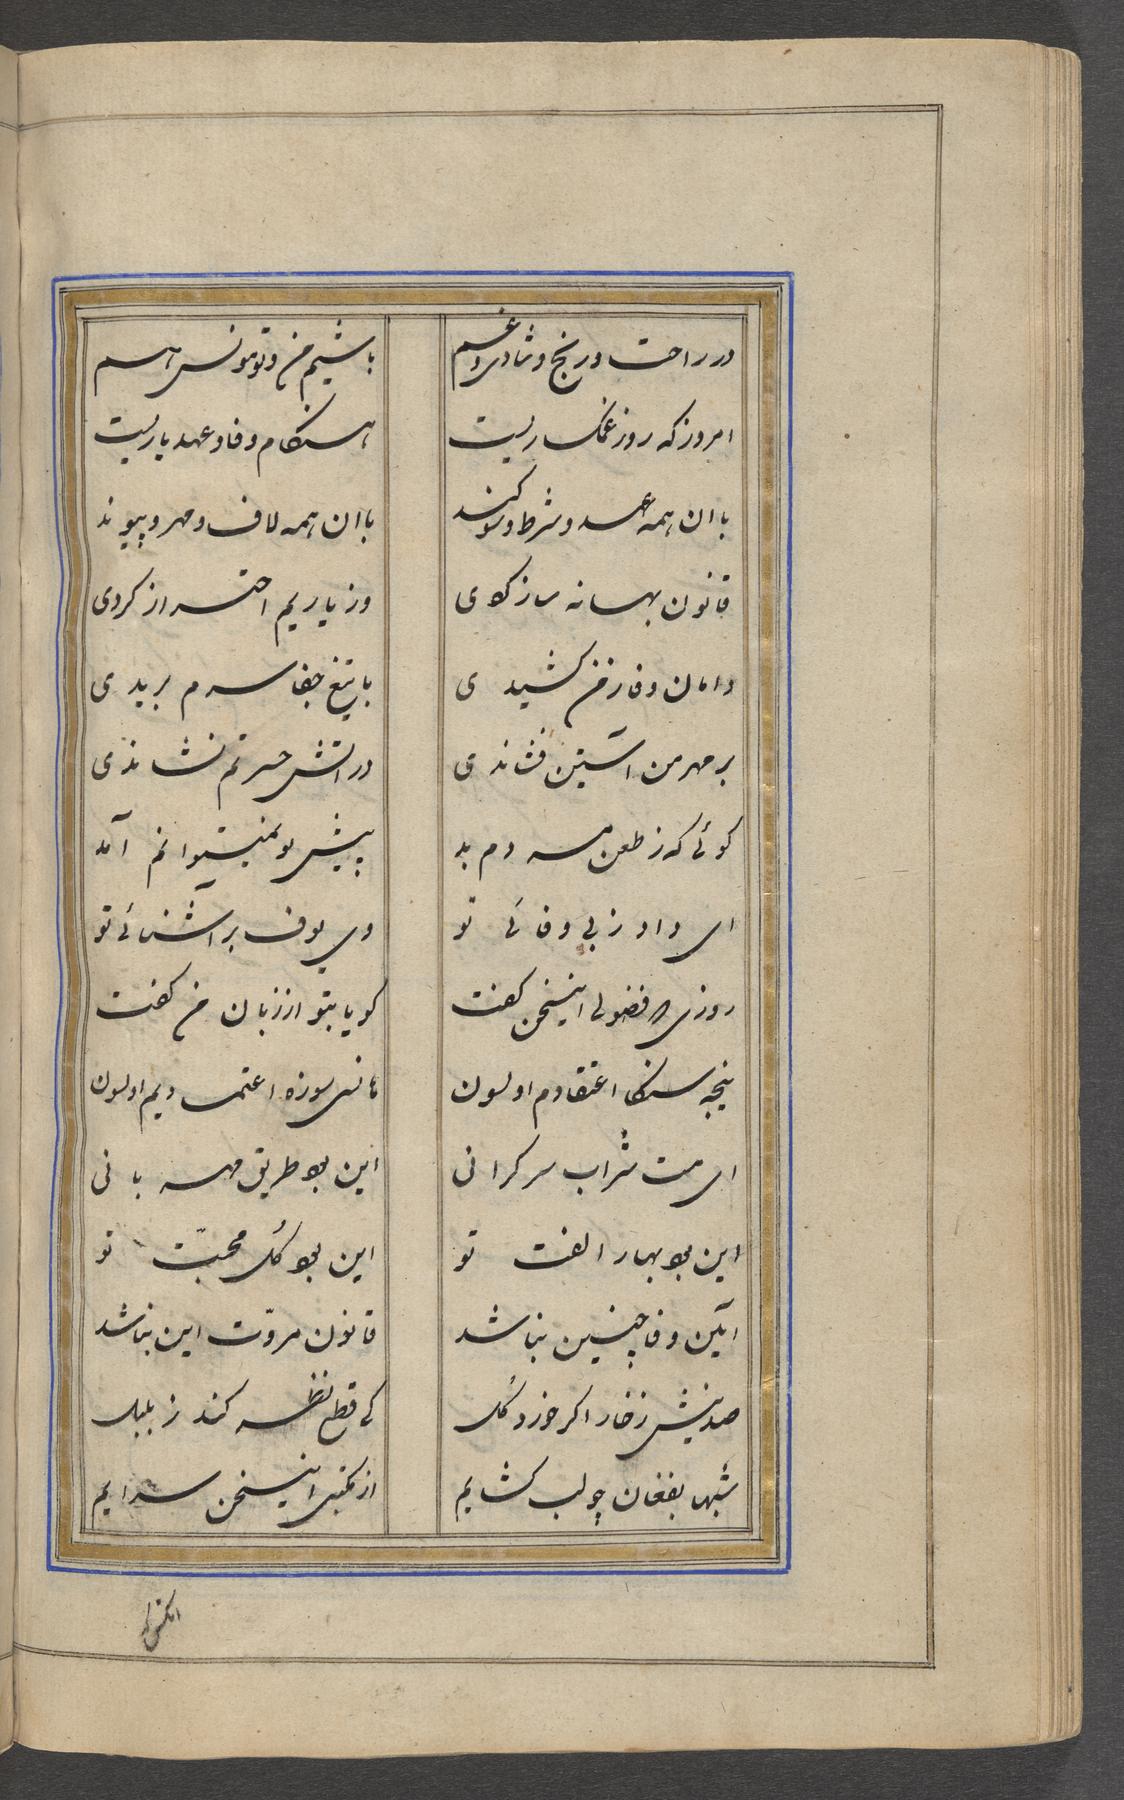 در راحت و رنج و شادی و غم
باشیم من و تو مونس هم
امروز که روز غمگساریست
هنگام وفا و عهد یاریست
با ان همه عهد و شرط و سوکند
با ان همه لاف و مهر و پیوند
قانون بهانه ساز کردی
وز یاریم احتراز کردی
دامان وفا ز من کشیدی
با تیغ جفا سرم بریدی
بر مهر من استین فشاندی
در اتش حسرتم نشاندی
کوئی که ز طعن مردم بد
پیش تو نمیتوانم آمد
ای داد ز بی وفائی تو
وی یوف بر اشنائی تو
روزی که فضولی اینسخن کفت
کویا بتو از زبان من کفت
نیجه سنکا اعتقادم اولسون
هانسی سوزه اعتمادیم اولسون
ای مست شراب سرکرانی
این بود طریق مهربانی
این بود بهار الفت تو
این بود کل محبّت تو
آیین وفا چنین نباشد
قانون مروّت این نباشد
صد نیش ز خار اکر خورد کل
کی قطع نظر کند ز بلبل
شبها بفغان چو لب کشایم
از مکتبی اینسخن سرایم